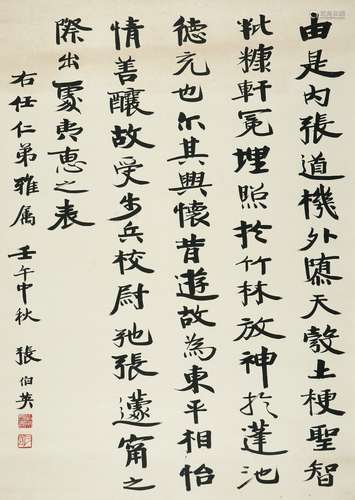 由是內張道機外隳天彀上梗聖智
粃糠軒冕埋照於竹林放神於蓬池
德充也尒其興懷昔遊故為東平相怡
情善釀故受步兵校尉弛張蘧甯之
際出處夷惠之表
右任仁弟雅属 壬午中秋 張伯英